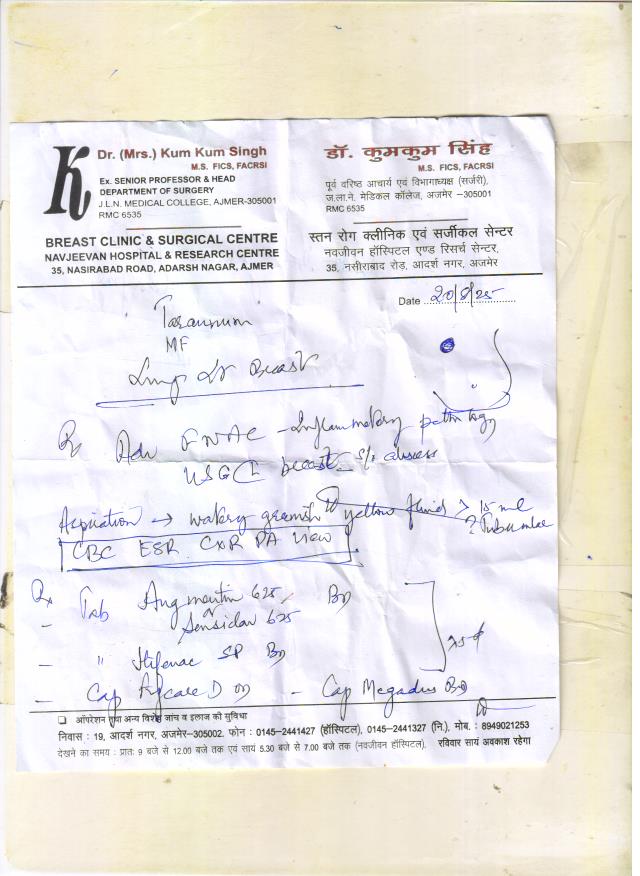 K
Dr. (Mrs.) Kum Kum Singh
M.S. FICS, FACRSI
Ex. SENIOR PROFESSOR & HEAD
DEPARTMENT OF SURGERY
J.L.N. MEDICAL COLLEGE, AJMER-305001
RMC 6535
BREAST CLINIC & SURGICAL CENTRE
NAVJEEVAN HOSPITAL & RESEARCH CENTRE
35, NASIRABAD ROAD, ADARSH NAGAR, AJMER
डॉ. कुमकुम सिंह
M.S. FICS, FACRSI
पूर्व वरिष्ठ आचार्य एवं विभागाध्यक्ष (सर्जरी),
ज.ला.ने. मेडिकल कॉलेज, अजमेर –305001
RMC 6535
स्तन रोग क्लीनिक एवं सर्जीकल सेन्टर
नवजीवन हॉस्पिटल एण्ड रिसर्च सेन्टर,
35, नसीराबाद रोड़, आदर्श नगर, अजमेर
Date 20/8/25
Tarannum
MF
Lump Lt Breast
Rx Adv FNAC - Inflammatory pathology
USG breast S/o abscess
Aspiration → watery greenish yellow fluid > 15 ml
CBC ESR CXR PA View
Rx Tab Augmentin 625 BD
or
625
- " SP BD
x 5 d
- Cap D OD - Cap BD
ऑपरेशन तथा अन्य विशेष जांच व इलाज की सुविधा
निवास : 19, आदर्श नगर, अजमेर-305002. फोन : 0145-2441427 (हॉस्पिटल), 0145-2441327 (नि.), मोब. : 8949021253
देखने का समय : प्रातः 9 बजे से 12.00 बजे तक एवं सायं 5.30 बजे से 7.00 बजे तक (नवजीवन हॉस्पिटल), रविवार सायं अवकाश रहेगा